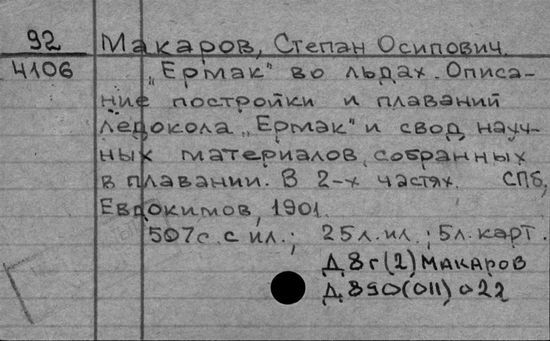 92 Макаров, Степан Осипович.
4106 „Ермак" во льдах. Описа-
ние постройки и плаваний
ледокола „Ермак" и свод науч-
ных материалов, собранных
в плавании. В 2-х частях. СПб,
Евдокимов, 1901.
507с. с ил.; 25л. ил.; 5л. карт.
Д8г(2) Макаров
Д890(011) 022